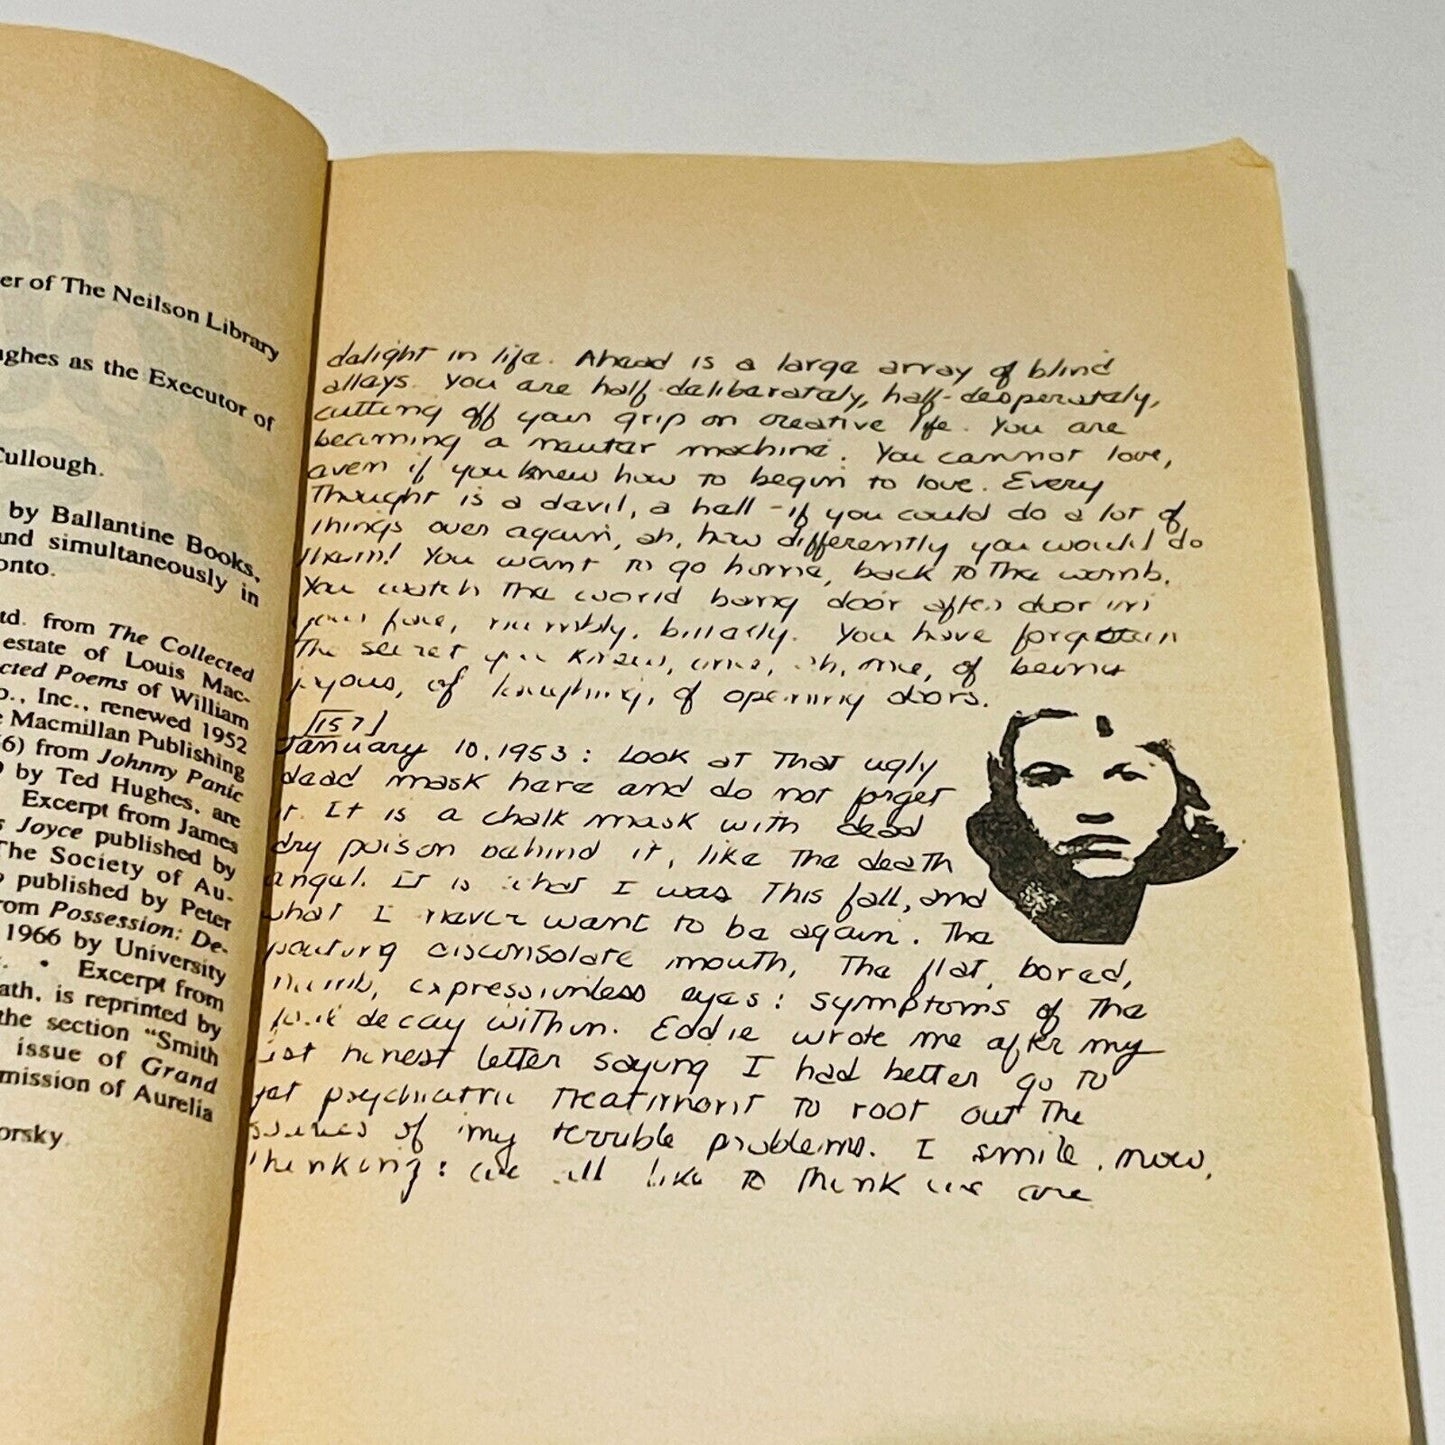 er of The Neilson Library
ughes as the Executor of
Cullough.
by Ballantine Books,
and simultaneously in
onto.
td. from The Collected
estate of Louis Mac-
cted Poems of William
o., Inc., renewed 1952
e Macmillan Publishing
6) from Johnny Panic
by Ted Hughes, are
Excerpt from James
s Joyce published by
The Society of Au-
published by Peter
rom Possession: De-
1966 by University
• Excerpt from
ath, is reprinted by
the section "Smith
issue of Grand
mission of Aurelia
orsky
delight in life. Ahead is a large array of blind
alleys. You are half-deliberately, half-desperately,
cutting off your grip on creative life. You are
becoming a neuter machine. You cannot love,
even if you knew how to begin to love. Every
Thought is a devil, a hell - if you could do a lot of
things over again, ah, how differently you would do
them! You want to go home, back to the womb.
You watch the world bang door after door in
your face, numbly, bitterly. You have forgotten
the secret you knew, once, ah, once, of being
joyous, of laughing, of opening doors.
[157]
January 10, 1953: Look at that ugly
dead mask here and do not forget
it. It is a chalk mask with dead
dry poison behind it, like the death
angel. It is what I was this fall, and
what I never want to be again. The
pouting disconsolate mouth, the flat, bored,
numb, expressionless eyes: symptoms of the
foul decay within. Eddie wrote me after my
last honest letter saying I had better go to
get psychiatric treatment to root out the
sources of my terrible problems. I smile, now,
thinking: we all like to think we are